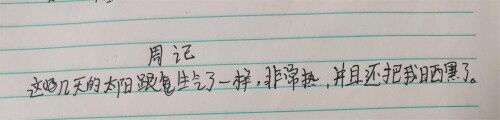 周记
这几天的太阳跟生气了一样，非常热，并且还把我晒黑了。